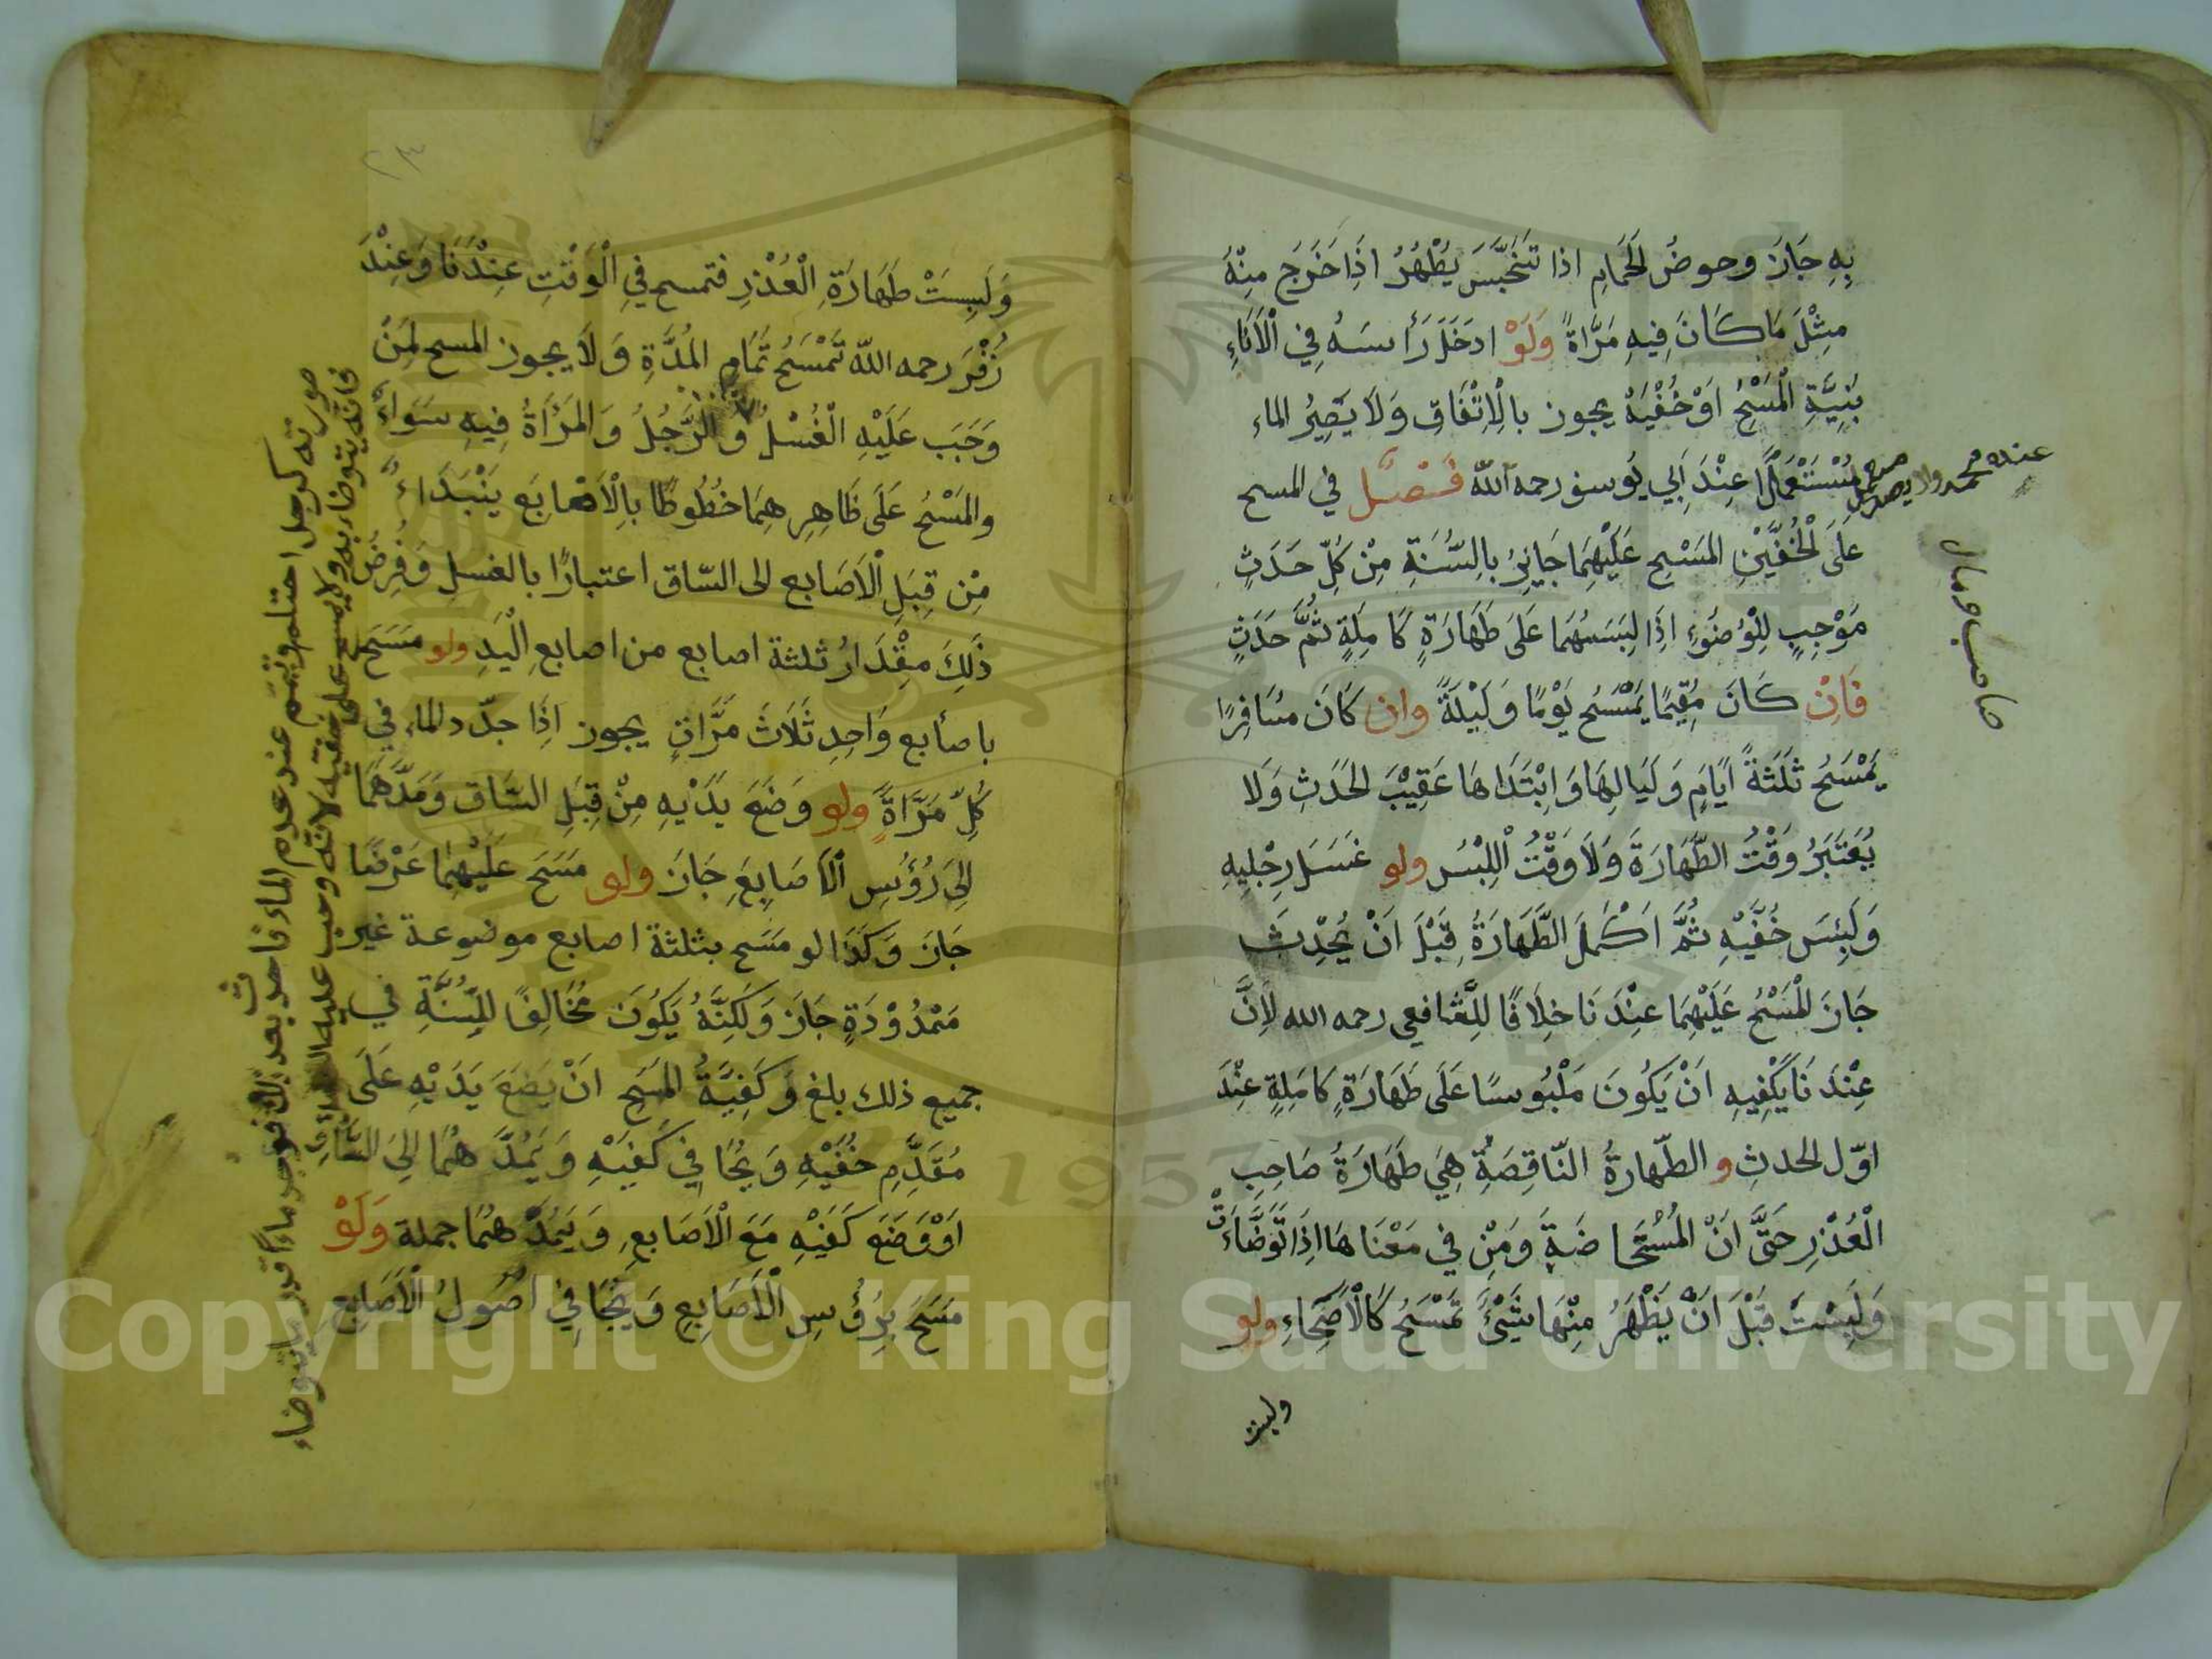 بِهِ جَازَ وحوضُ الحَمامِ اذا تَنَجَّسَ يَطْهُرُ اذَا خَرَجَ مِنْهُ
مِثْلَ مَا كَانَ فِيهِ مَرَّاةً وَلَوْ ادخَلَ رَأسَهُ فِي الْاَنَاءِ
بَنِيَّةِ الْمَسْحِ اَوْ خُفَّيْهِ يجوز بالْاِتِّفَاقِ وَلَا يَصِيرُ الماء
مُسْتَعْمَلًا عِنْدَ اَبِي يُوسف رحمه اللّه فَصْل في المسح
عَلَى الْخُفَّيْنِ المَسْحِ عَلَيْهِمَا جَايِزٌ بالسُّنَةِ مِنْ كُلِّ حَدَثٍ
مَوْجِبٍ لِلْوُضُوءِ اذَا لِبَسَهُمَا عَلَى طَهَارَةٍ كَامِلَةٍ ثُمَّ حَدَثٍ
فَاِنْ كَانَ مُقِيمًا يَمْسَحُ يَوْمًا وَلَيْلَةً وان كَانَ مُسَافِرًا
يَمْسَحُ ثَلَثَةَ اَيَامٍ وَلَيَالِهَا وَابْتَدَاهَا عَقِيْبَ الحَدَثِ وَلَا
يُعْتَبَرُ وَقْتُ الطَّهَارَةَ وَلَا وَقْتُ اللِبْسَ ولو غَسَلَ رِجْلِيهِ
وَلَبِسَ خُفَّيْهِ ثُمَّ اَكْمَلَ الطَّهَارَةُ قَبْلَ اَنْ يُحْدِثَ
جَازَ الْمَسْحُ عَلَيْهِمَا عِنْدَنَا خِلَافًا لِلشَّافعي رحمه الله لِاَنَّ
عِنْدَنَا يَكْفِيهِ اَنْ يَكُونَ مَلْبُوسًا عَلَى طَهَارَةٍ كَامِلَةٍ عِنْدَ
اوّل الحدثِ و الطّهارةُ النّاقِصَةُ هِيَ طَهَارَةُ صَاحِبِ
الْعُذْرِ حَتَّى اَنْ الْمُسْتَحَاضَةِ وَمَنْ فِي مَعْنَاهَا اِذَا تَوَضَّاءَتْ
وَلَبِسَتْ قَبْلَ اَنْ يَظْهَرُ مِنْهَا شَيْئٌ تَمْسَحُ كَالْاَصِحَاءِ ولو
ولبست
عند محمد ولا يصير مستعمل
صاحب ومال
٢٣
وَلَبِسَتْ طَهَارَةِ الْعُذْرِ فتمسح فِي الْوَقْتِ عِنْدَنَا وَعِنْدَ
زُفَرَ رحمه اللّه تَمْسَحُ تَمَامِ المُدَّةِ وَلَا يجوز المسح لِمَنْ
وَجَبَ عَلَيْهِ الْغُسْلُ وَ الرَّجُلُ وَالمَرْاَةُ فِيهِ سَوَاءٌ
والمَسْحُ عَلَى ظَاهِرِهِمَا خُطُوطًا بالْاَصَابَع يَبْتَدَاءُ
مِنْ قِبَلِ الْاَصَابع الى السّاق اعتبارًا بالغسل وَفِرَضُ
ذَلِكَ مِقْدَارُ ثلثة اصابع من اصابعِ الْيَدِ ولو مَسَحَ
باصابع وَاحِدِ ثَلَاثَ مَرَّاتٍ يجوز اِذَا جدّد الماء في
كُلِّ مَرَّاةٍ ولو وَضَعَ يَدَيْهِ مِنْ قِبَلِ السَّاقِ وَمَدَّهُمَا
اِلَى رُؤسِ الْاَصَابِعِ جَازَ ولو مَسَحَ عَلَيْهِمَا عَرْضًا
جَازَ وَكَذَا لو مَسَح بثلثة اصابع موضوعة غير
مَمْدُوْدَةٍ جَازَ وَلَكِنَّهُ يَكُونَ مُخَالِفًا لِلسُّنَّةِ في
جميع ذلك بلغ وَكَفِيَّةُ المَسَحِ اَنْ يَضَعَ يَدَيْهِ عَلَى
مُقَدَّمِ خُفَّيْهِ وَيُجَافِي كَفَيْهِ وَيَمُدَّ هُمَا اِلَى السَّاقِ
اَوْ وَضَعَ كَفَيْهِ مَعَ الْاَصَابعِ وَيَمُدَّ هُمَا جملة وَلَوْ
مَسَحَ بِرُؤُسِ الْاَصَابِعِ وَيُجَافِي اُصُولُ الْاَصَابِعِ
صورته كرجل احتلم وتيمم عند عدم الماء فاحدث بعد ذلك فوجد ماءً قدر ما يتوضاء
فانه يتوضاء به ولا يمسح على خفيه لانه وجب عليه
Copyright © King Saud University
1957